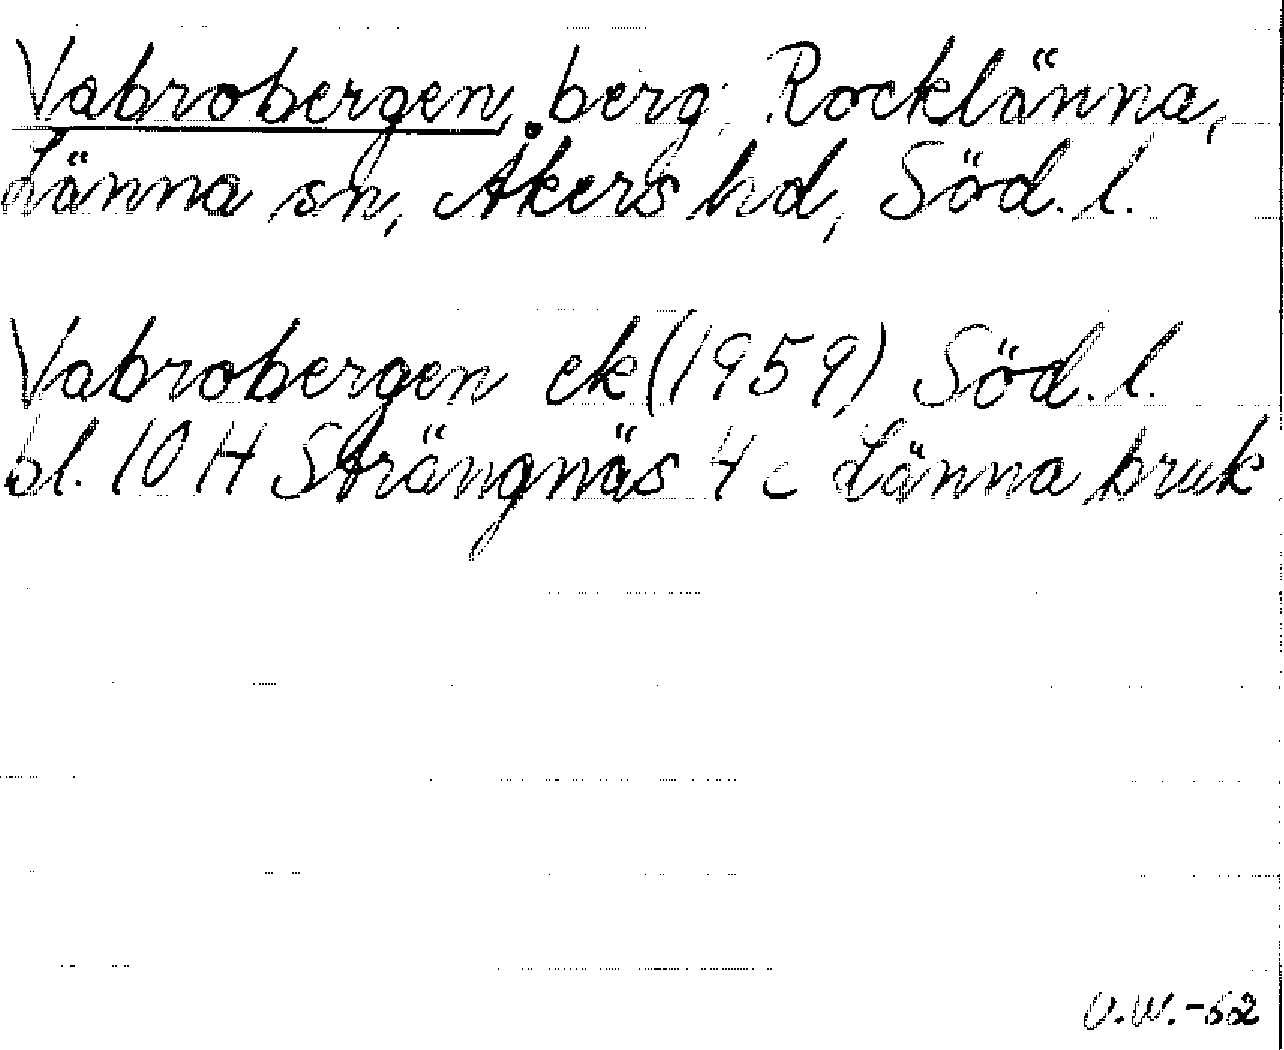 Vabrobergen, berg, Rocklänna,
Länna sn, Åkers hd, Söd. l.
Vabrobergen ek (1959) Söd. l.
bl. 10 H Strängnäs 4 c Länna bruk
U.W.-62